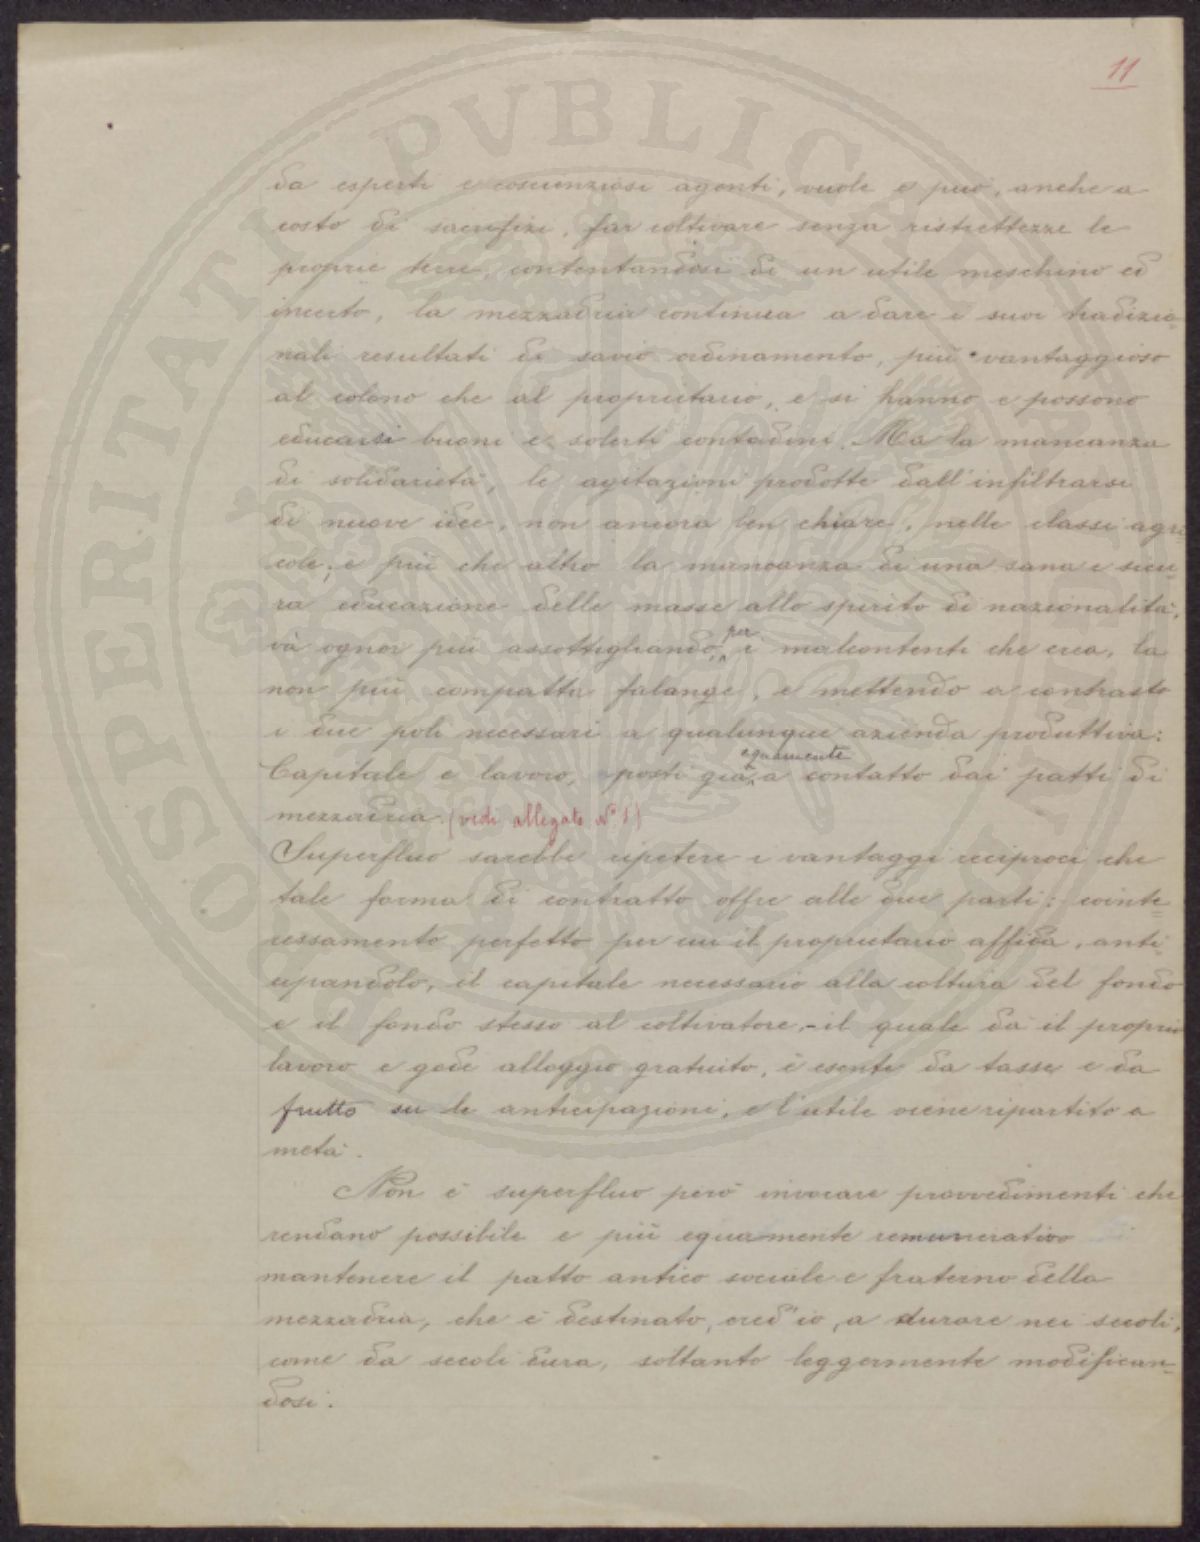 11
da esperti e coscienziosi agenti, vuole e può, anche a
costo di sacrifizi, far coltivare senza ristrettezze le
proprie terre, contentandosi di un utile meschino ed
incerto, la mezzadria continua a dare i suoi tradizio=
nali resultati di savio ordinamento, più vantaggioso
al colono che al proprietario, e si hanno e possono
educarsi buoni e solerti contadini. Ma la mancanza
di solidarietà, le agitazioni prodotte dall'infiltrarsi
di nuove idee, non ancora ben chiare, nelle classi agri=
cole; e più che altro la mancanza di una sana e sicu=
ra educazione delle masse allo spirito di nazionalità,
và ognor più assottigliando, per i malcontenti che crea, la
non più compatta falange, e mettendo a contrasto
i due poli necessari a qualunque azienda produttiva:
Capitale e lavoro, posti già equamente a contatto dai patti di
mezzadria. (vedi allegato N° 1)
Superfluo sarebbe ripetere i vantaggi reciproci che
tale forma di contratto offre alle due parti: cointe=
ressamento perfetto per cui il proprietario affida, anti=
cipandolo, il capitale necessario alla coltura del fondo
e il fondo stesso al coltivatore,- il quale dà il proprio
lavoro e gode alloggio gratuito, è esente da tasse e da
frutto su le anticipazioni, e l'utile viene ripartito a
metà.
Non è superfluo però invocare provvedimenti che
rendano possibile e più equamente remunerativo
mantenere il patto antico sociale e fraterno della
mezzadria, che è destinato, cred'io, a durare nei secoli,
come da secoli dura, soltanto leggermente modifican=
dosi.